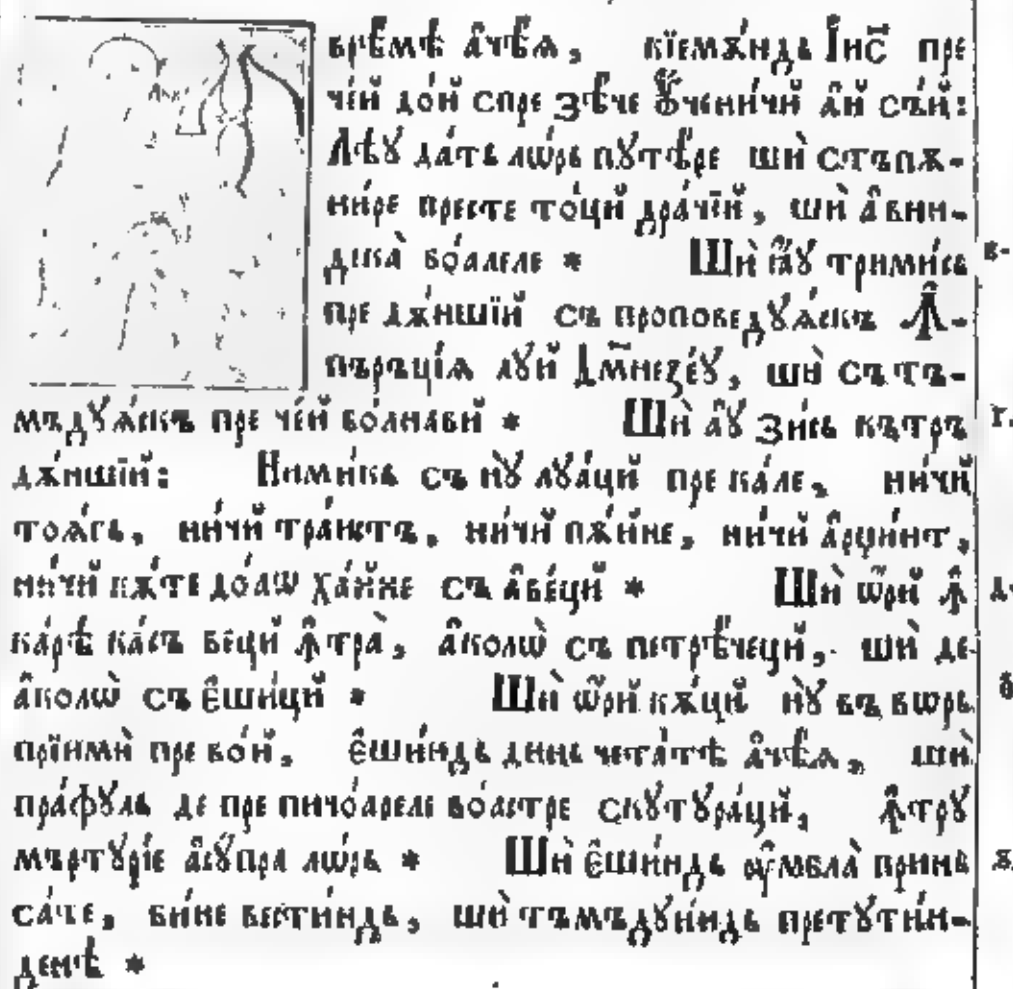 врѣмѣ а҆чѣѧ, кїемѫндь І҆ис҃ пре
чей до́й спре зѣче Ꙋ҆ченичй ай съй:
Лѣꙋ да́ть лѡрь пꙋтѣре шѝ стъпѫ-
ни́ре престе то́цй дра́чїй, шѝ а҆вин-
дека̀ бо́алеле * Шѝ і҆аꙋ тримись в-
пре дѫ́ншїй съ проповедꙋѧскъ Ꙟ҆-
пъръцїѧ лꙋй Дм҃незе́ꙋ, шѝ сътъ-
мъдꙋѧскъ пре чей бо́лнавй * Шѝ аꙋ зись кътръ г.
дѫ́ншїй: Нимикь съ нꙋ лꙋацй пре ка́ле, ничй
тоѧгь, ничй траистъ, ничй пѫ́йне, ничй а҆рџинт,
ничй кѫ́те до́аѡ ха́йне съ а҆ве́цй * Шѝ ѡ҆рй ꙟ҆ д.
ка́рѣ ка́съ вецй ꙟ҆тра̀, а҆колѡ̀ съ петрѣчецй, шѝ де
а҆колѡ̀ съ є҆шицй * Шѝ ѡ҆рй кѫ́цй нꙋ въ ворь є
прїимѝ пре во́й, є҆шиндь динь чета́тѣ а҆чѣѧ, шѝ
пра́фꙋль де пре пичо́ареле во́астре скꙋтꙋра́цй, ꙟ҆трꙋ
мъртꙋрїе а҆сꙋпра лѡрь * Шѝ є҆шиндь оу҆мбла̀ принь ѕ
са́те, бине вестиндь, шѝ тъмъдꙋиндь претꙋтин-
денѣ *